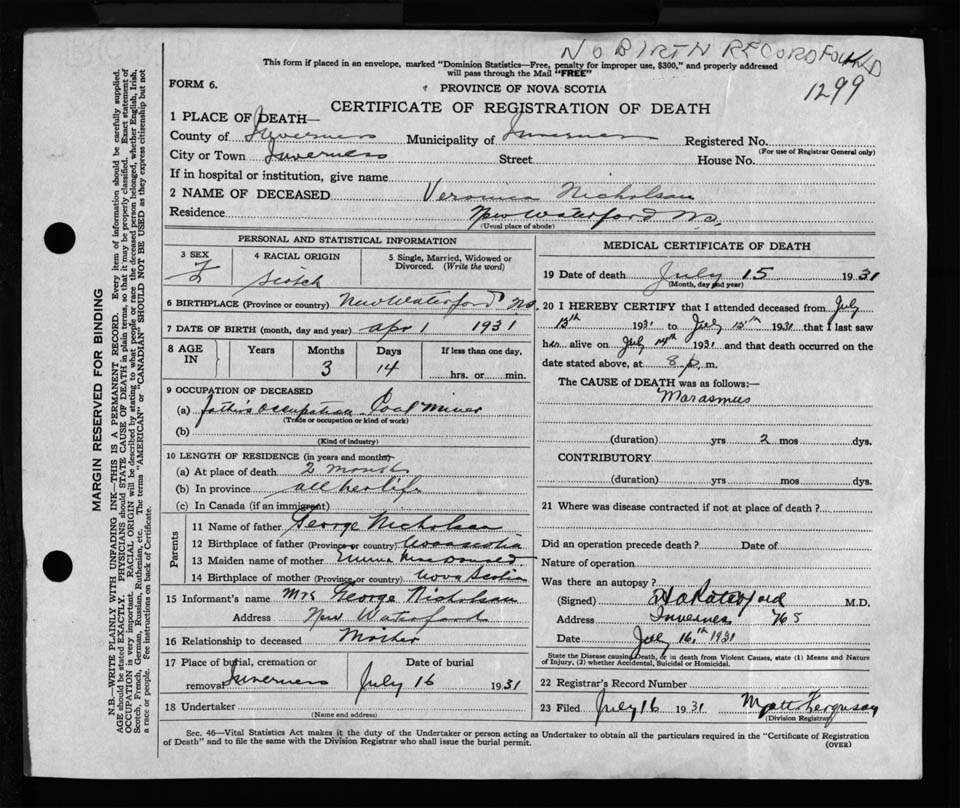 NO BIRTH RECORD FOUND
1299
This form if placed in an envelope, marked "Dominion Statistics—Free, penalty for improper use, $300," and properly addressed
will pass through the Mail "FREE"
FORM 6.
PROVINCE OF NOVA SCOTIA
CERTIFICATE OF REGISTRATION OF DEATH
1 PLACE OF DEATH—
County of Inverness Municipality of Inverness Registered No.
(For use of Registrar General only)
City or Town Inverness Street House No.
If in hospital or institution, give name
2 NAME OF DECEASED Veronica Nicholson
Residence New Waterford N.S.
(Usual place of abode)
PERSONAL AND STATISTICAL INFORMATION
3 SEX 4 RACIAL ORIGIN 5 Single, Married, Widowed or Divorced. (Write the word)
F Scotch
6 BIRTHPLACE (Province or country) New Waterford N.S.
7 DATE OF BIRTH (month, day and year) Apr 1 1931
8 AGE IN Years Months Days If less than one day,
3 14 hrs. or min.
9 OCCUPATION OF DECEASED
(a) father's occupation Coal Miner
(Trade or occupation or kind of work)
(b)
(Kind of industry)
10 LENGTH OF RESIDENCE (in years and months)—
(a) At place of death 2 months
(b) In province all her life
(c) In Canada (if an immigrant)
Parents
11 Name of father George Nicholson
12 Birthplace of father (Province or country) Nova Scotia
13 Maiden name of mother
14 Birthplace of mother (Province or country) Nova Scotia
15 Informant's name Mrs George Nicholson
Address New Waterford
16 Relationship to deceased Mother
17 Place of burial, cremation or removal Inverness Date of burial July 16 1931
18 Undertaker
(Name and address)
MEDICAL CERTIFICATE OF DEATH
19 Date of death July 15 1931
(Month, day and year)
20 I HEREBY CERTIFY that I attended deceased from July
13th 1931 to July 15th 1931 that I last saw
her alive on July 14th 1931 and that death occurred on the
date stated above, at 8 p. m.
The CAUSE OF DEATH was as follows:—
Marasmus
(duration) yrs 2 mos dys.
CONTRIBUTORY
(duration) yrs. mos. dys.
21 Where was disease contracted if not at place of death?
Did an operation precede death? Date of
Nature of operation
Was there an autopsy?
(Signed) M.D.
Address Inverness
Date July 16th 1931
State the Disease causing Death, or in death from Violent Causes, state (1) Means and Nature
of Injury, (2) whether Accidental, Suicidal or Homicidal.
22 Registrar's Record Number
23 Filed July 16 1931 Matt Ferguson
(Division Registrar)
Sec. 46—Vital Statistics Act makes it the duty of the Undertaker or person acting as Undertaker to obtain all the particulars required in the "Certificate of Registration
of Death" and to file the same with the Division Registrar who shall issue the burial permit.
(OVER)
MARGIN RESERVED FOR BINDING
N.B.—WRITE PLAINLY WITH UNFADING INK—THIS IS A PERMANENT RECORD. Every item of information should be carefully supplied.
AGE should be stated EXACTLY. PHYSICIANS should STATE CAUSE OF DEATH in plain terms, so that it may be properly classified. Exact statement of
OCCUPATION is very important. RACIAL ORIGIN will be described by stating to what people or race the deceased person belonged, whether English, Irish,
Scotch, French, German, Russian, Ruthenian, etc. The terms "AMERICAN" or "CANADIAN" SHOULD NOT BE USED as they express citizenship but not
a race or people. Fee instructions on back of Certificate.